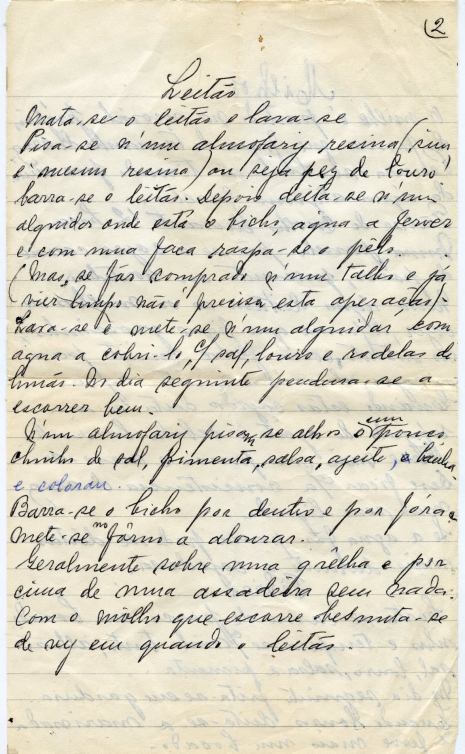 2
Leitão
Mata-se o leitão e lava-se
Pisa-se n'um almofariz resina (sim
é mesmo resina) ou seja pez de louro
barra-se o leitão. Depois deita-se n'um
alguidar onde está o bicho, agua a ferver
e com uma faca raspa-se o pêlo.
(Mas, se fôr comprado n'um talho e já
vier limpo não é precisa esta operação)-
Lava-se e mete-se n'um alguidar com
agua a cobri-lo, c/ sal, louro e rodelas de
limão. No dia seguinte pendura-se a
escorrer bem.
N'um almofariz pisam-se alhos um pouco
chinho de sal, pimenta, salsa, azeite, e banha
e colorau.
Barra-se o bicho por dentro e por fóra e
mete-se no fôrno a alourar.
Geralmente sobre uma grêlha e por
cima de uma assadeira sem nada.
Com o môlho que escorre besunta-se
de vez em quando o leitão.